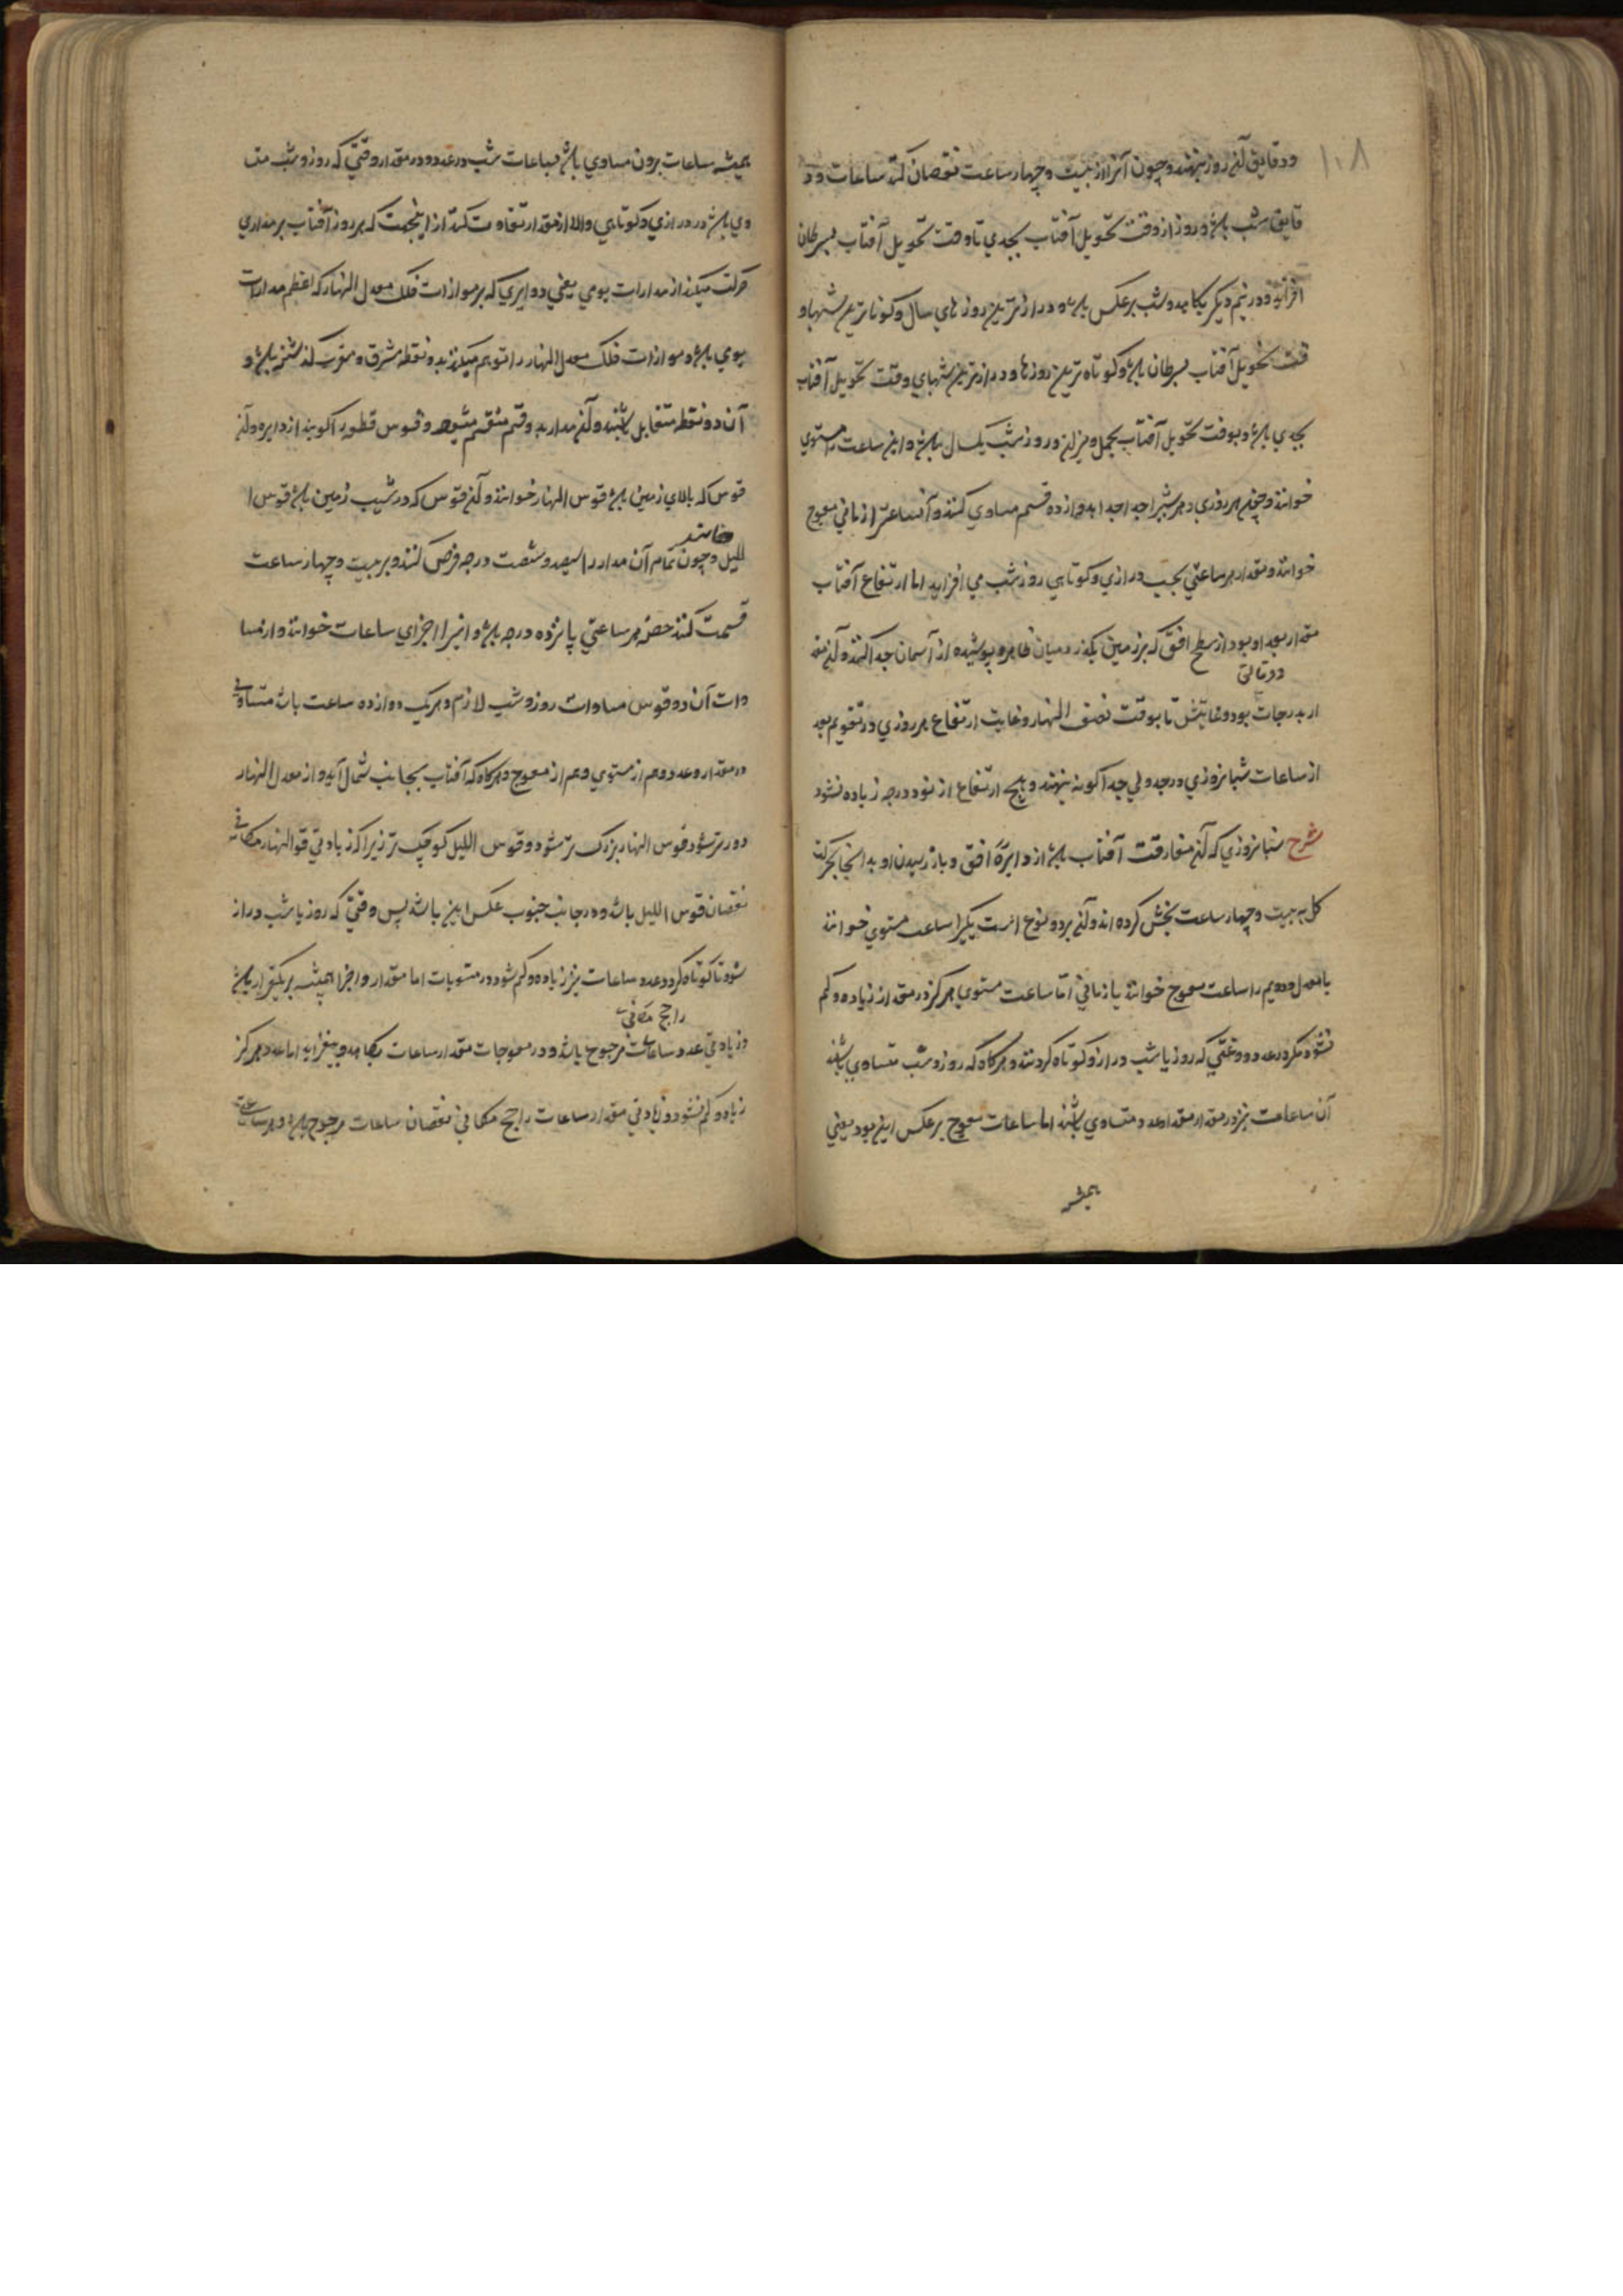 ۱۰۸
ودقایق آن روز بنهند و چون آنرا از بیست و چهار ساعت نقصان کنند ساعات و د
قایق شب باشد و روز از وقت تحویل آفتاب بجدي تا وقت تحویل آفتاب بسرطان
افزاید و در نیم دیگر بکاهد و شب برعکس باشد و درازترین روزهاي سال و کوتاترین شبها و
قت تحویل آفتاب بسرطان باشد و کوتاه ترین روزها و درازترین شبهاي وقت تحویل آفتاب
بجدي باشد و بوقت تحویل آفتاب بحمل و میزان روز و شب یکسان باشد و این ساعت را مستوي
خوانند و چون هر روزي و هر شبي را جدا جدا بدوازده قسم مساوي کنند و آن ساعت را زماني معوج
خوانند و مقدار هر ساعتي بحسب درازي و کوتاهي روز و شب مي افزاید اما ارتفاع آفتاب
مقدار بعد او بود از سطح افق که بر زمین بگذرد میان ظاهر و پوشیده از آسمان جدا کند و آن مقد
ار بدرجات بود و غایتش تا بوقت نصف النهار و غایت ارتفاع هر روزي در تقویم بعد
از ساعات شبانروزي در جدولي جداگونه بنهند و هیچ ارتفاع از نود درجه زیاده نشود
شرح شبانروزي که آن مفارقت آفتاب باشد از دایرهٔ افق و باز رسیدن او بدانجا بحرکت
کل به بیست و چهار ساعت بخش کرده اند و آن بر دو نوع است یکیرا ساعت مستوي خوانند
یا معدل و دویم را ساعت معوج خوانند یا زماني اما ساعت مستوي هرگز در مقدار زیاده و کم
نشود مگر در عدد و وقتي که روز یا شب دراز و کوتاه گردند و هرگاه که روز و شب متساوي باشند
آن ساعات نیز در مقدار و عدد متساوي باشند اما ساعات معوج برعکس این بود یعني
همیشه
همیشه ساعات برون مساوي باشد بساعات شب در عدد و در مقدار وقتي که روز و شب متسا
وي باشد در درازي و کوتاهي والا از مقدار تفاوت کند از اینجهت که هر روز آفتاب بر مداري
حرکت میکند از مدارات یومي یعني دوایري که بر موازات فلک معدل النهار که اعظم مدارات
یومي باشد و موازات فلک معدل النهار را توهم میکنند بدو نقطه مشرق و مغرب گذشته باشد و
آن دو نقطه متقابل باشند و آن مدار بدو قسم منقسم میشود و قوس قطعه را گویند از دایره و آن
قوس که بالاي زمین باشد قوس النهار خوانند و آن قوس که در شیب زمین باشد قوس ا
للیل خوانند و چون تمام آن مدار را سیصد و شصت درجه فرض کنند و بر بیست و چهار ساعت
قسمت کنند حصهٔ هر ساعتي پانزده درجه باشد و اینرا اجزاي ساعات خوانند و از مسا
وات آن دو قوس مساوات روز و شب لازم و هر یک دوازده ساعت باشد متساوي
در مقدار و عدد و هم از مستوي و هم از معوج و هرگاه که آفتاب بجانب شمال آید و از معدل النهار
دورتر شود قوس النهار بزرگ تر شود و قوس اللیل کوچک تر زیرا که زیادتي قوس النهار مکافي
نقصان قوس اللیل باشد و در جانب جنوب عکس این باشد پس وقتي که روز یا شب دراز
شود تا کوتاه گردد عدد ساعات نیز زیاده و کم شود در مستویات اما مقدار و اجزا همیشه بر یکقرار باشد
و زیادتي عدد ساعات راجح مکافي ساعات مرجوح باشد و در معوجات مقدار ساعات بکاهد و بیفزاید اما عدد هرگز
زیاد و کم نشود و زیادتي مقدار ساعات راجح مکافي نقصان ساعات مرجوح باشد و هر ساعت